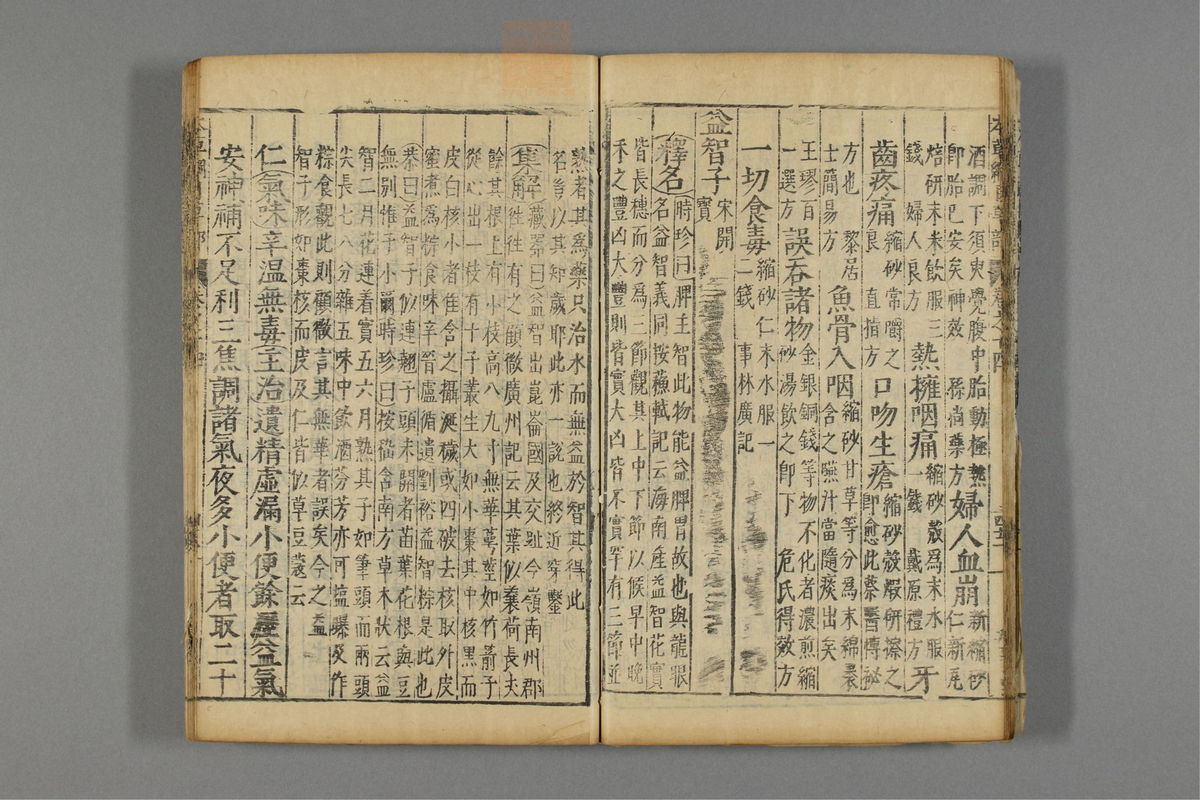 酒調下須臾覺腹中胎動極熱即胎已安矣神效 孫尚藥方婦人血崩新縮砂仁新瓦
焙研末米飲服三錢 婦人良方熱擁咽痛縮砂殼爲末水服一錢 戴原禮方牙
齒疼痛縮砂常嚼之良 直指方口吻生瘡縮砂殼煅研擦之即愈此蔡醫博秘
方也 黎居士簡易方魚骨入咽縮砂甘草等分爲末綿裹含之嚥汁當隨痰出矣
王璆百一選方誤吞諸物金銀銅錢等物不化者濃煎縮砂湯飲之即下 危氏得效方
一切食毒縮砂仁末水服一二錢 事林廣記
益智子宋開寶
釋名時珍曰脾主智此物能益脾胃故也與龍眼名益智義同按蘇軾記云海南產益智花實
皆長穗而分爲三節觀其上中下節以候早中晚禾之豐凶大豐則皆實大凶皆不實罕有三節並
熟者其爲藥只治水而無益於智其得此名豈以其知歲耶此亦一說也終近穿鑿
集解藏器曰益智出崑崙國及交趾今嶺南州郡往往有之顧微廣州記云其葉似蘘荷長丈
餘其根上有小枝高八九寸無華萼莖如竹箭子從心出一枝有十子叢生大如小棗其中核黑而
皮白核小者佳含之攝涎穢或四破去核取外皮蜜煮爲粽食味辛晉盧循遺劉裕益智粽是此也
恭曰益智子似連翹子頭未開者苗葉花根與豆無別惟子小爾時珍曰按嵇含南方草木狀云益
智二月花連着實五六月熟其子如筆頭而兩頭尖長七八分雜五味中飲酒芬芳亦可鹽曝及作
粽食觀此則顧微言其無華者誤矣今之益智子形如棗核而皮及仁皆似草豆蔻云
仁氣味辛溫無毒主治遺精虛漏小便餘瀝益氣
安神補不足利三焦調諸氣夜多小便者取二十